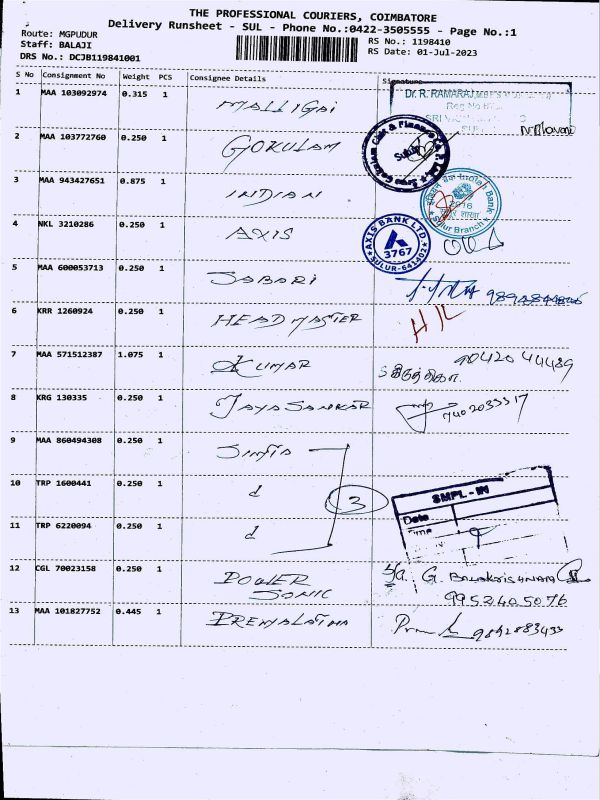 THE PROFESSIONAL COURIERS, COIMBATORE
Delivery Runsheet - SUL - Phone No.:0422-3505555 - Page No.:1
Route: MGPUDUR
Staff: BALAJI
DRS No.: DCJB119841001
RS No.: 1198410
RS Date: 01-Jul-2023
S No Consignment No Weight PCS Consignee Details Signature
1 MAA 103092974 0.315 1 MALLIGAI
Dr. R. RAMARAJ
Reg No
2 MAA 103772760 0.250 1 GOKULAM
Sulur
3 MAA 943427651 0.875 1 INDIAN
Indian Bank
2016
Sulur Branch
4 NKL 3210286 0.250 1 AXIS
AXIS BANK LTD.
3767
SULUR-641402
5 MAA 600053713 0.250 1 SABARI
6 KRR 1260924 0.250 1 HEAD MASTER
7 MAA 571512387 1.075 1 KUMAR 90420 44489
8 KRG 130335 0.250 1 JAYA SANKAR 7402033317
9 MAA 860494308 0.250 1
10 TRP 1600441 0.250 1 d
3
11 TRP 6220094 0.250 1 d
SMPL - IN
Date
Time
12 CGL 70023158 0.250 1 POWER SONIC G. BALAKRISHNAN
9952405076
13 MAA 101827752 0.445 1 PREMALATHA